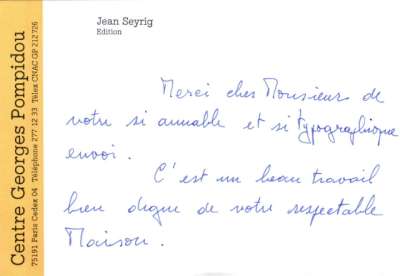 Jean Seyrig
Edition
Centre Georges Pompidou
75191 Paris Cedex 04 Téléphone 277 12 33 Télex CNAC GP 212 726
Merci cher Monsieur de
votre si aimable et si typographique
envoi.
C'est un beau travail
bien digne de votre respectable
Maison.